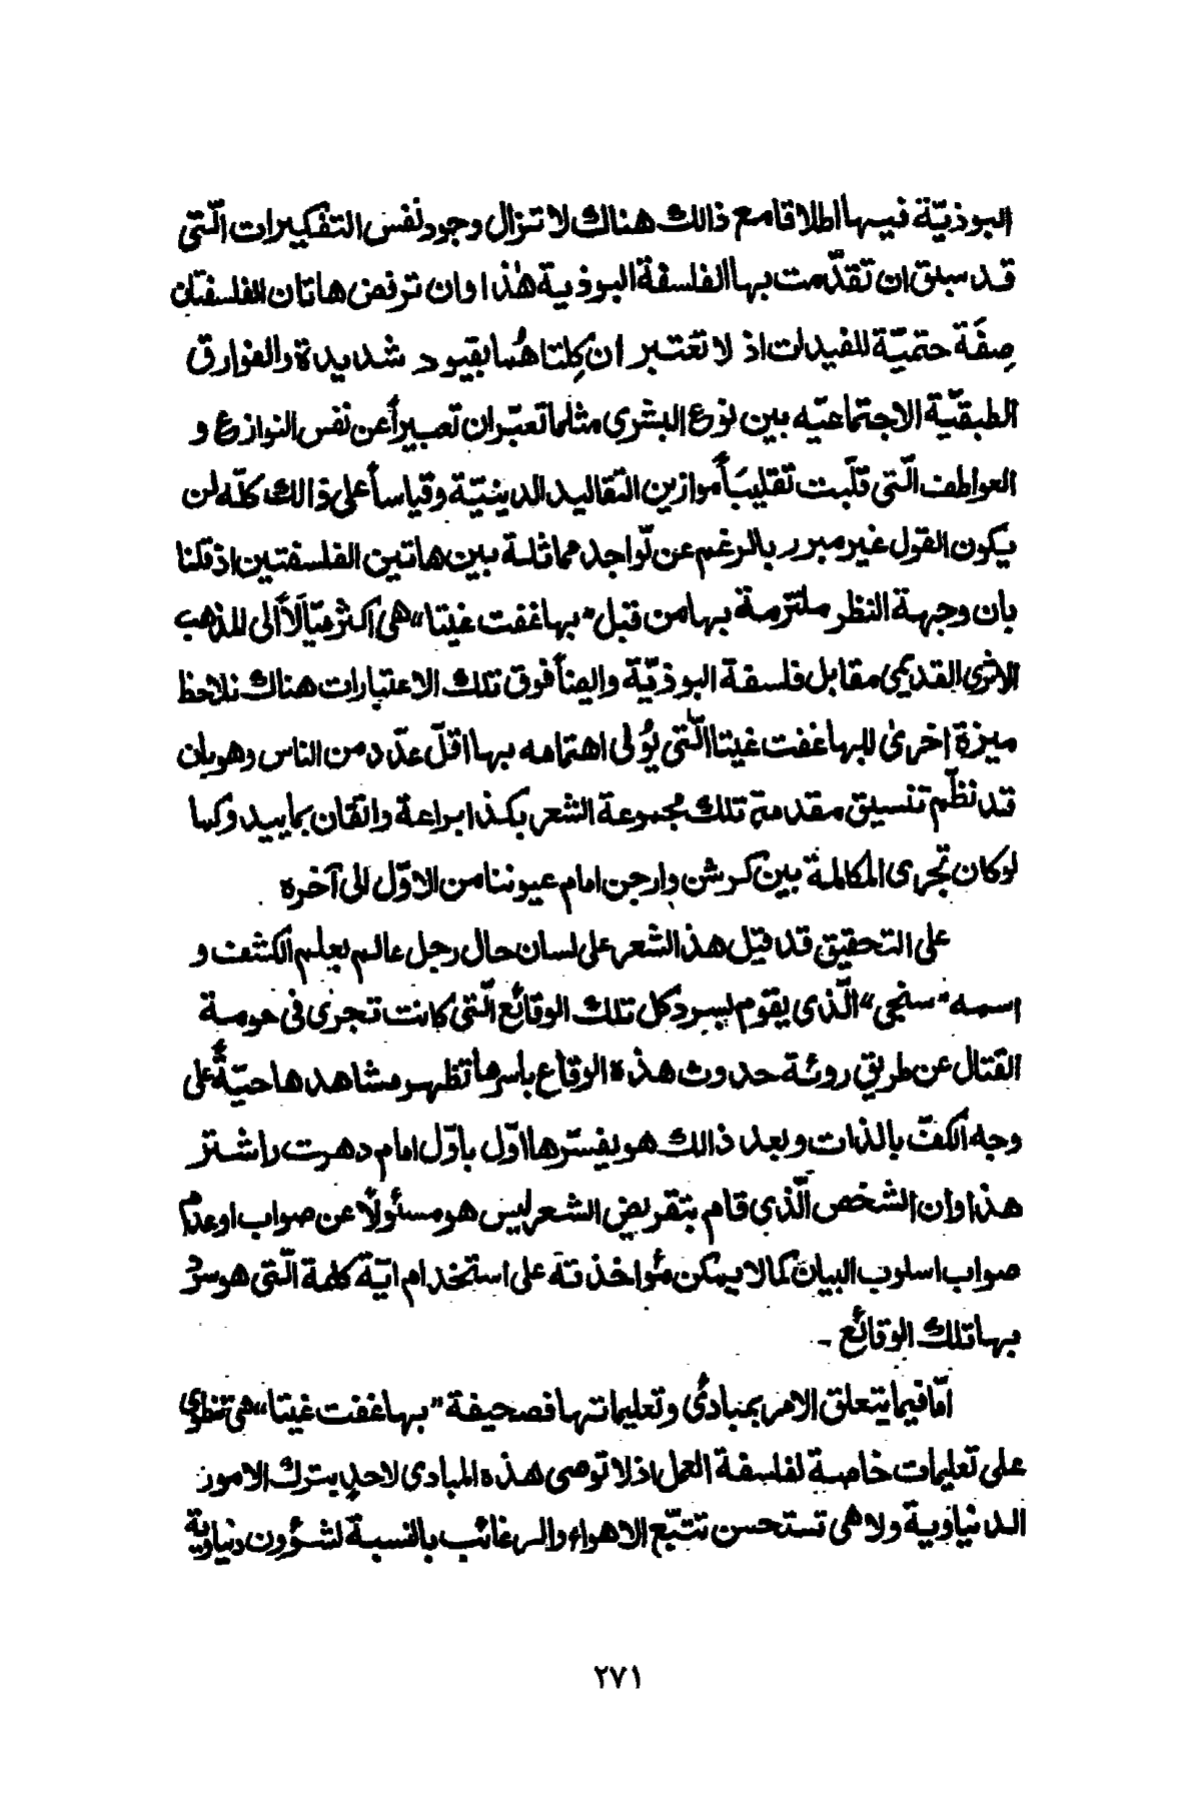 البوذيّة فيها اطلاقا مع ذالك هناك لا تزال وجود نفس التفكيرات الّتي
قد سبق ان تقدّمت بها الفلسفة البوذية هٰذا وان ترفض هاتان الفلسفتان
صِفَة حتميّة للفيدات اذ لا تعتبر ان كِلتا هُما بقيود شديدة والفوارق
الطبقيّة الاجتماعيّه بين نوع البشري مثلما تعبّران تعبيراً عن نفس النوازع و
العواطف الّتي قلّبت تقليبَاً موازين التقاليد الدينيّة وقياساً على ذالك كلّه لن
يكون القول غير مبرر بالرغم عن تواجد مماثلة بين هاتين الفلسفتين اذ قلنا
بان وجهة النظر ملتزمة بها من قبل "بهاغفت غيتا" هي اكثر ميّالاً الى المذهب
الاثري القديمي مقابل فلسفة البوذيّة وايضاً فوق تلك الاعتبارات هناك نلاحظ
ميزة اخرىٰ للبهاغفت غيتا الّتي يُولى اهتمامه بها اقلّ عدّد من الناس وهو بان
قد نظّم تنسيق مقدمة تلك مجموعة الشعر بكذا براعة واتقان بما يبدو كما
لو كان تجرى المكالمة بين كرشن وارجن امام عيوننا من الاوّل الى آخره
على التحقيق قد قيّل هذ الشعر على لسان حال رجل عالم بعلم الكشف و
اسمه "سنجى" الّذي يقوم بسرد كل تلك الوقائع الّتي كانت تجرى في حومة
القتال عن طريق روئة حدوث هذه الوقاع باسرها تظهر مشاهدها حيّةً على
وجه الكفّ بالذات وبعد ذالك هو يفسّرها اوّل باوّل امام دهرت راشتر
هذا وان الشخص الّذي قام بتقريض الشعر ليس هو مسئولاً عن صواب او عدم
صواب اسلوب البيان كما لا يمكن مُواخذته على استخدام ايّة كلمة الّتي هو سرد
بها تلك الوقائع -
امّا فيما يتعلق الامر بمبادئ وتعليماتها فصحيفة "بهاغفت غيتا" هي تنطوي
على تعليمات خاصة لفلسفة العمل اذ لا توصى هذه المبادى لاحدٍ بترك الامور
الدنياوية ولا هي تستحسن تتبّع الاهواء والرغائب بالنسبة لشؤون دنياوية
٢٧١